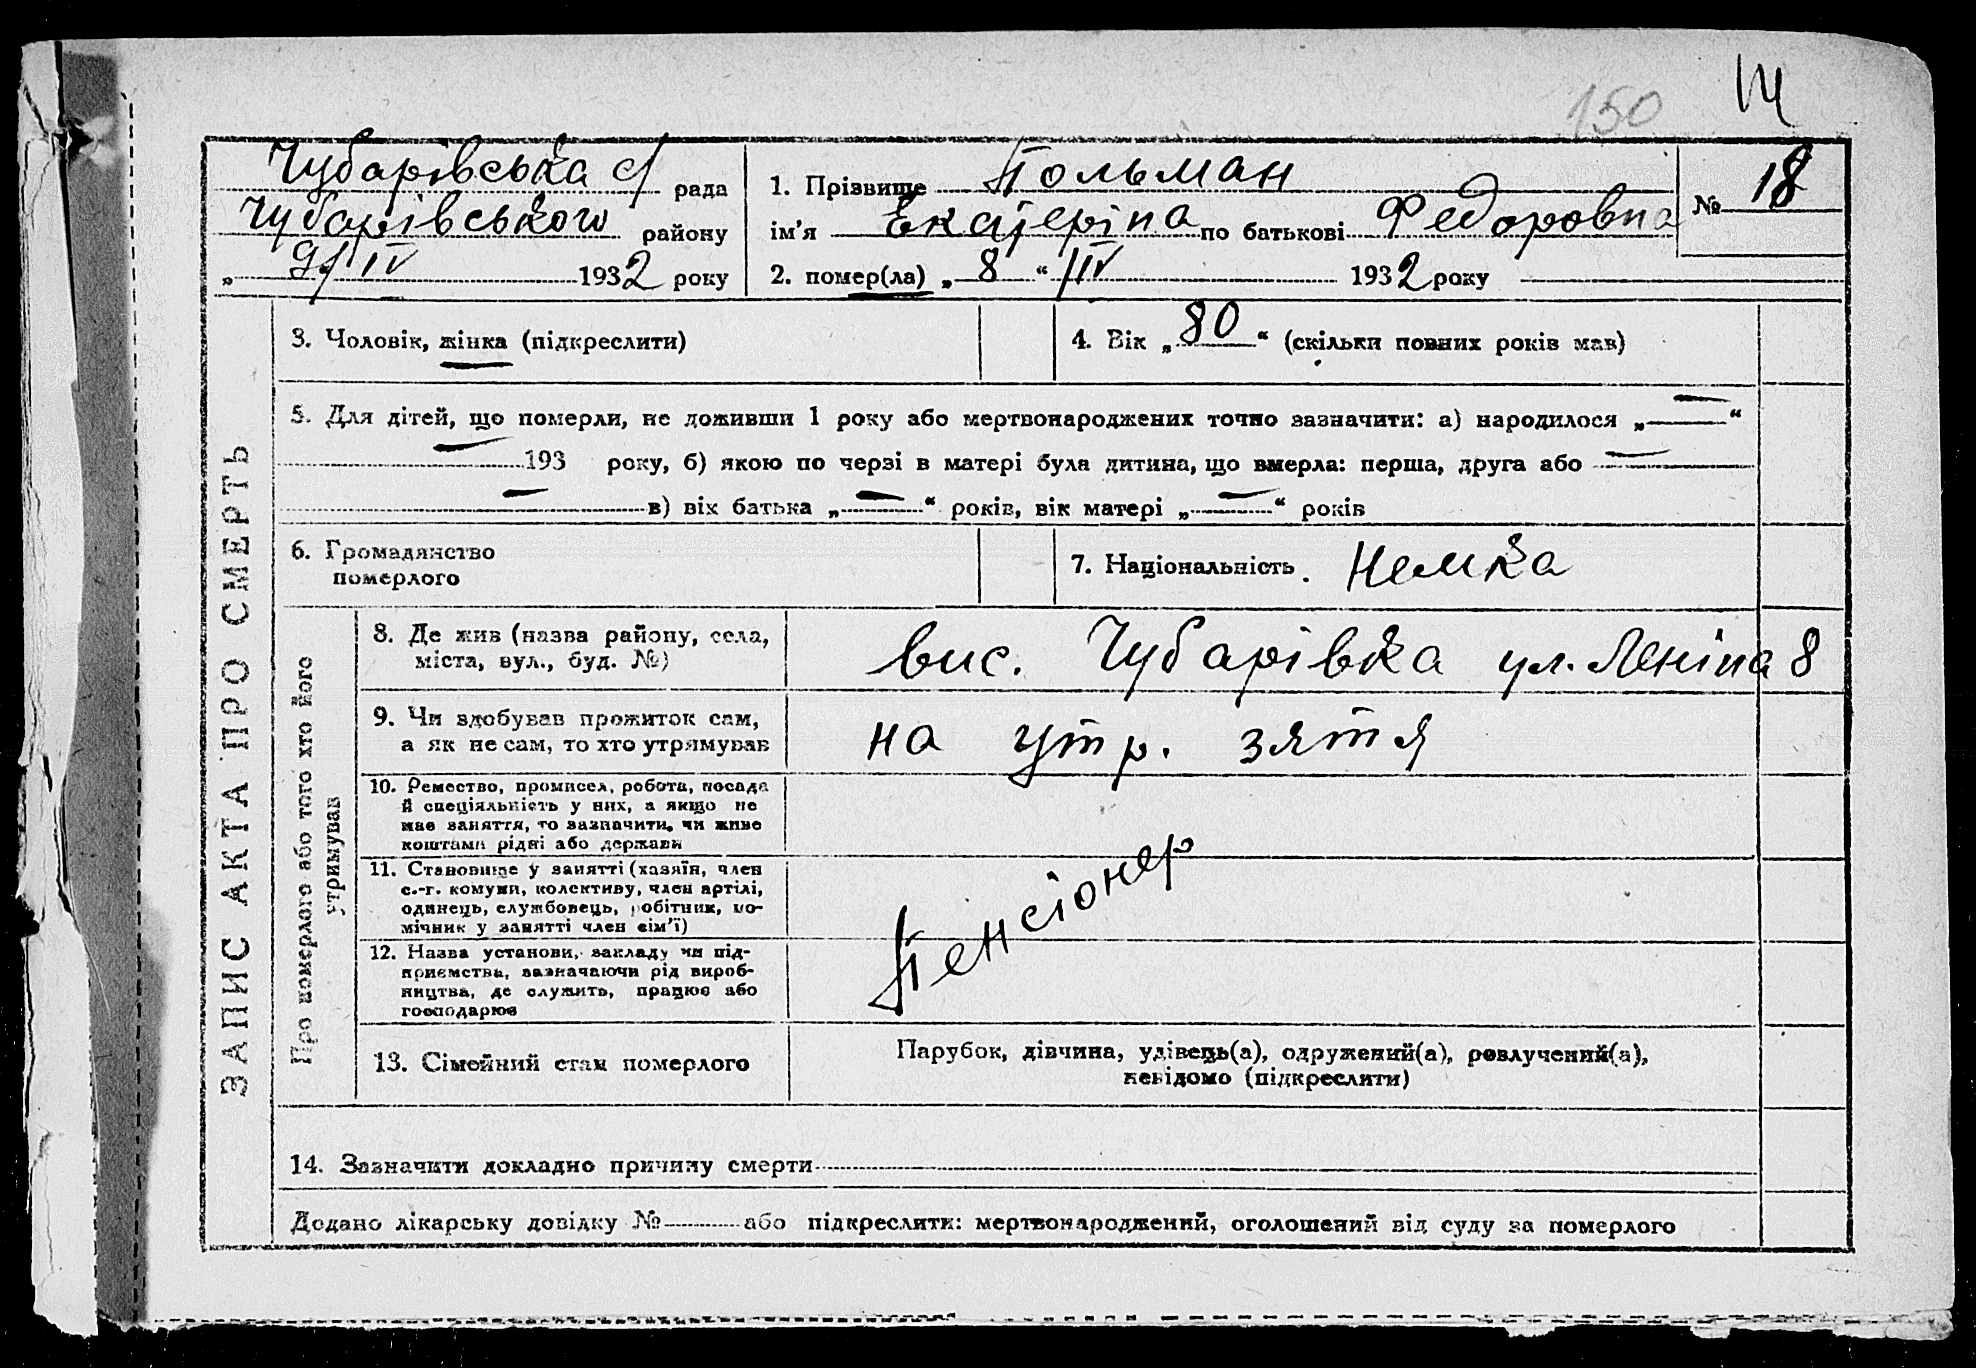 14
150
Чубарівська с/ рада
Чубарівського району
„ 9/IV 1932 року
1. Прізвище Тольман
ім’я Екатеріна по батькові Федоровна
2. помер(ла) „ 8 “ IV 1932 року
№ 18
ЗАПИС АКТА ПРО СМЕРТЬ
3. Чоловік, жінка (підкреслити)
4. Вік „ 80 “ (скільки повних років мав)
5. Для дітей, що померли, не доживши 1 року або мертвонароджених точно зазначити: а) народилося „ — “
— 193 року, б) якою по черзі в матері була дитина, що вмерла: перша, друга або —
— в) вік батька „ — “ років, вік матері „ — “ років
6. Громадянство
померлого
7. Національність. Немка
Про померлого або того хто його
утримував
8. Де жив (назва району, села,
міста, вул., буд. №)
вис. Чубарівка ул. Леніна 8
9. Чи здобував прожиток сам,
а як не сам, то хто утримував
на утр. зятя
10. Ремество, промисел, робота, посада
й спеціяльність у них, а якщо не
має заняття, то зазначити, чи живе
коштами рідні або держави
11. Становище у занятті (хазяїн, член
с.-г. комуни, колективу, член артілі,
одинець, службовець, робітник, по-
мічник у занятті член сім’ї)
12. Назва установи, закладу чи під-
приємства, зазначаючи рід вироб-
ництва, де служить, працює або
господарює
Пенсіонер
13. Сімейний стан померлого
Парубок, дівчина, удівець(а), одружений(а), розлучений(а),
невідомо (підкреслити)
14. Зазначити докладно причину смерти
Додано лікарську довідку № або підкреслити: мертвонароджений, оголошений від суду за померлого